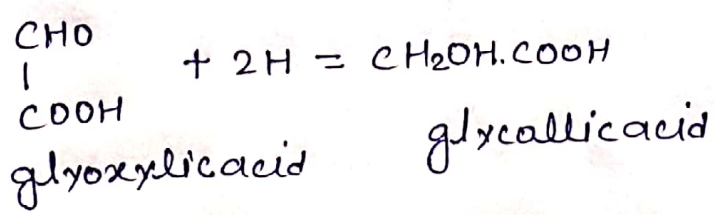 CHO
|
COOH
+ 2H = CH₂OH.COOH
glyoxylicacid
glycallicacid